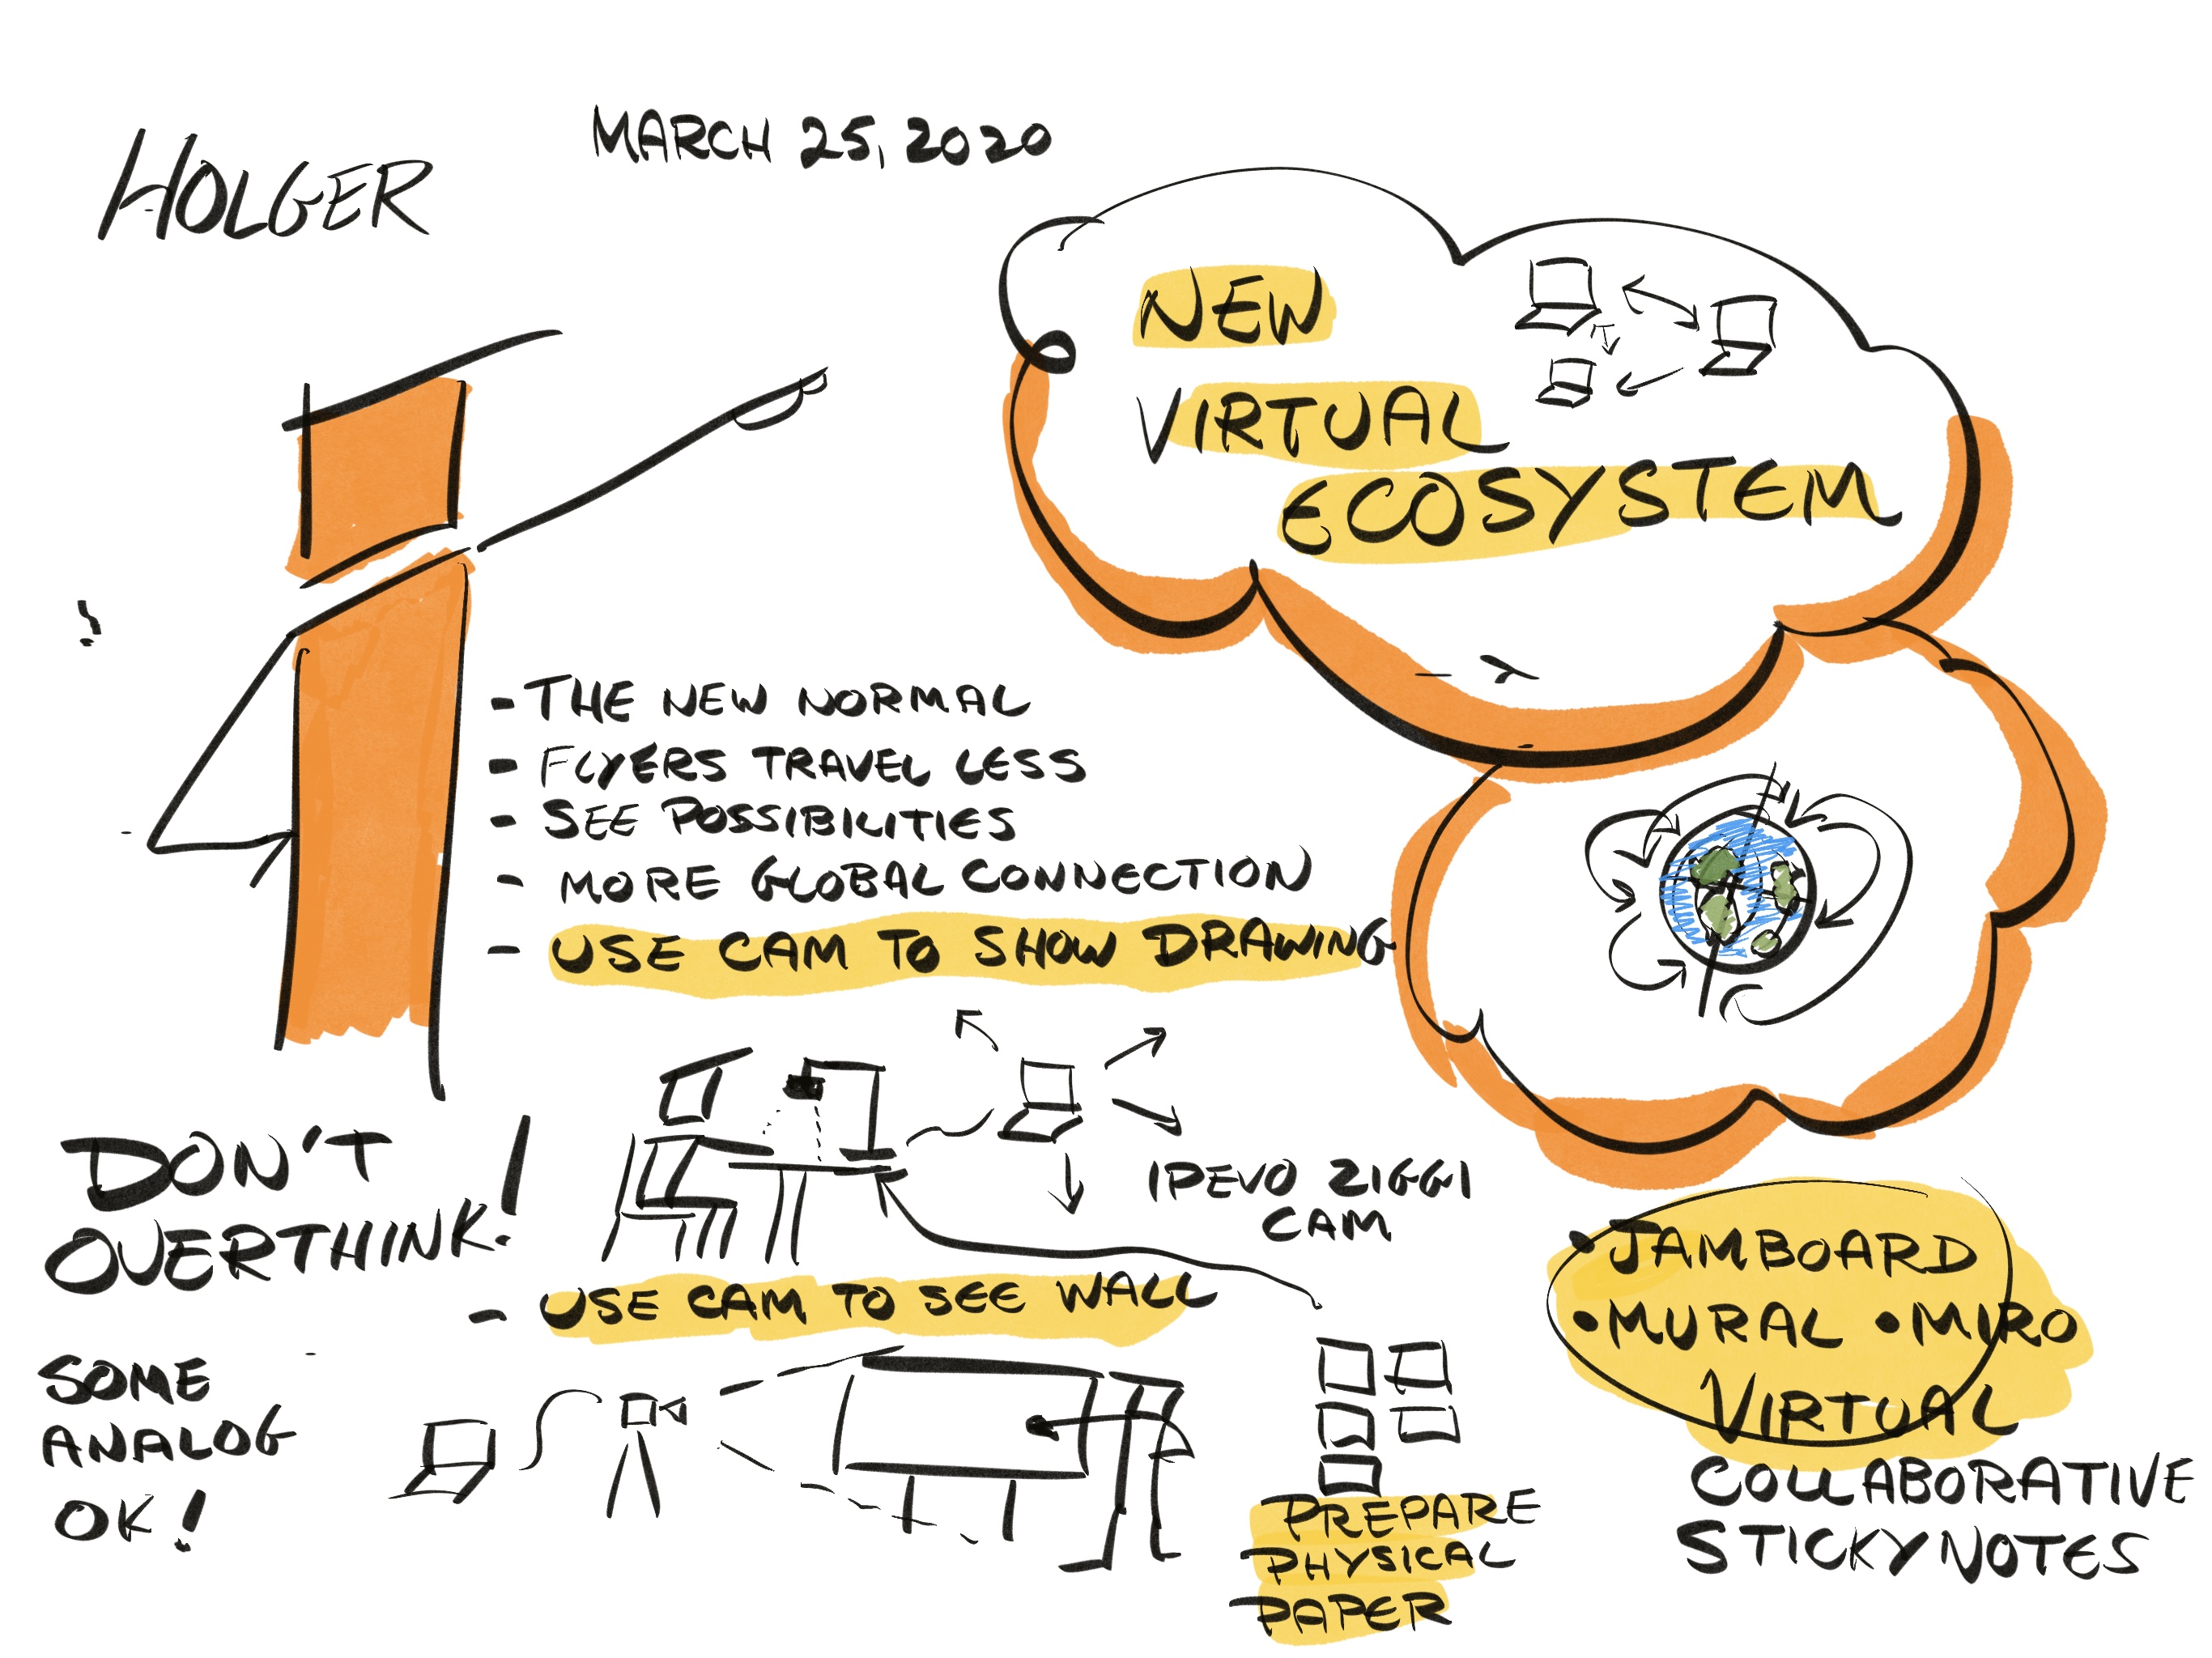 HOLGER
MARCH 25, 2020
NEW
VIRTUAL
ECOSYSTEM
- THE NEW NORMAL
- FLYERS TRAVEL LESS
- SEE POSSIBILITIES
- MORE GLOBAL CONNECTION
- USE CAM TO SHOW DRAWING
IPEVO ZIGGI
CAM
DON'T
OVERTHINK!
- USE CAM TO SEE WALL
SOME
ANALOG
OK!
PREPARE
PHYSICAL
PAPER
• JAMBOARD
• MURAL • MIRO
VIRTUAL
COLLABORATIVE
STICKYNOTES